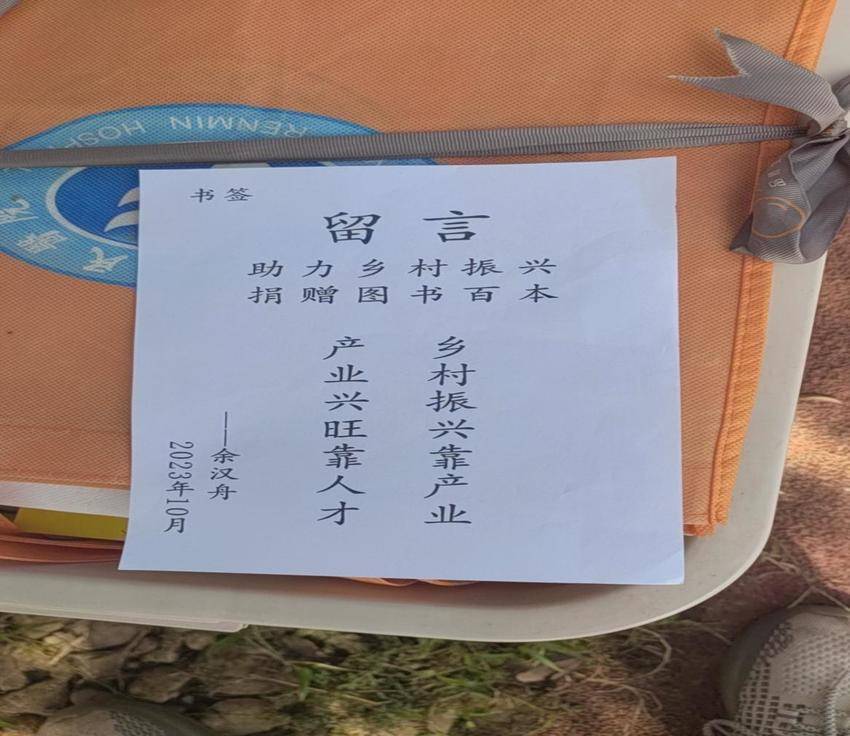 书签
留言
助力乡村振兴
捐赠图书百本
乡村振兴靠产业
产业兴旺靠人才
——余汉舟
2023年10月
RENMIN HOSP